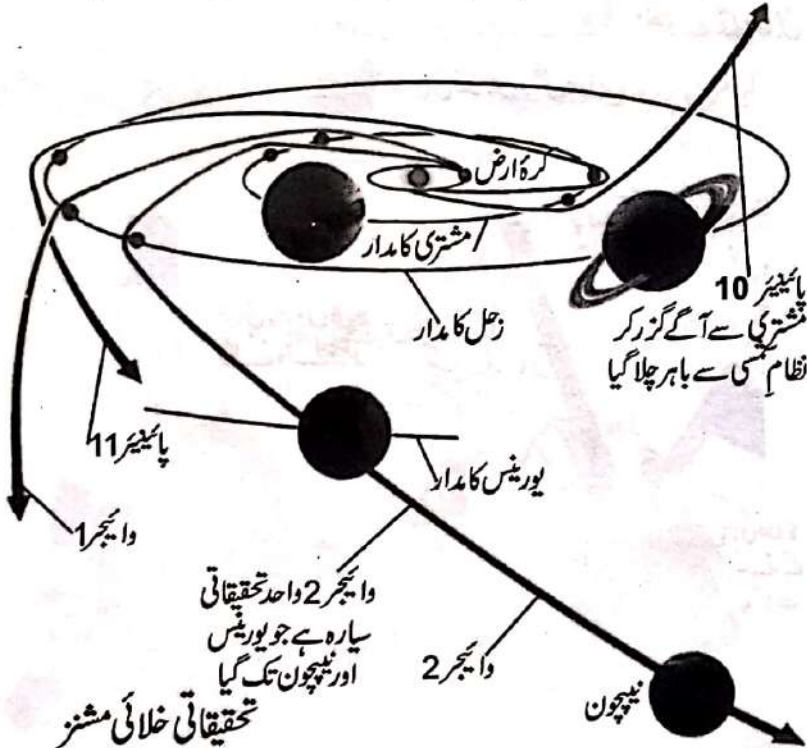 کرۂ ارض
مشتری کا مدار
زحل کا مدار
پائینیئر 10
مشتری سے آگے گزر کر
نظامِ شمسی سے باہر چلا گیا
پائینیئر 11
یورینس کا مدار
وائیجر 1
وائیجر 2 واحد تحقیقاتی
سیارہ ہے جو یورینس
اور نیپچون تک گیا
وائیجر 2
نیپچون
تحقیقاتی خلائی مشنز